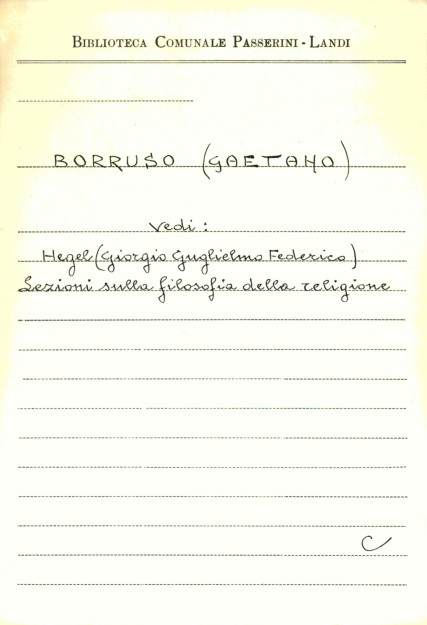 BIBLIOTECA COMUNALE PASSERINI - LANDI
BORRUSO (GAETANO)
Vedi :
Hegel (Giorgio Guglielmo Federico)
Lezioni sulla filosofia della religione
C